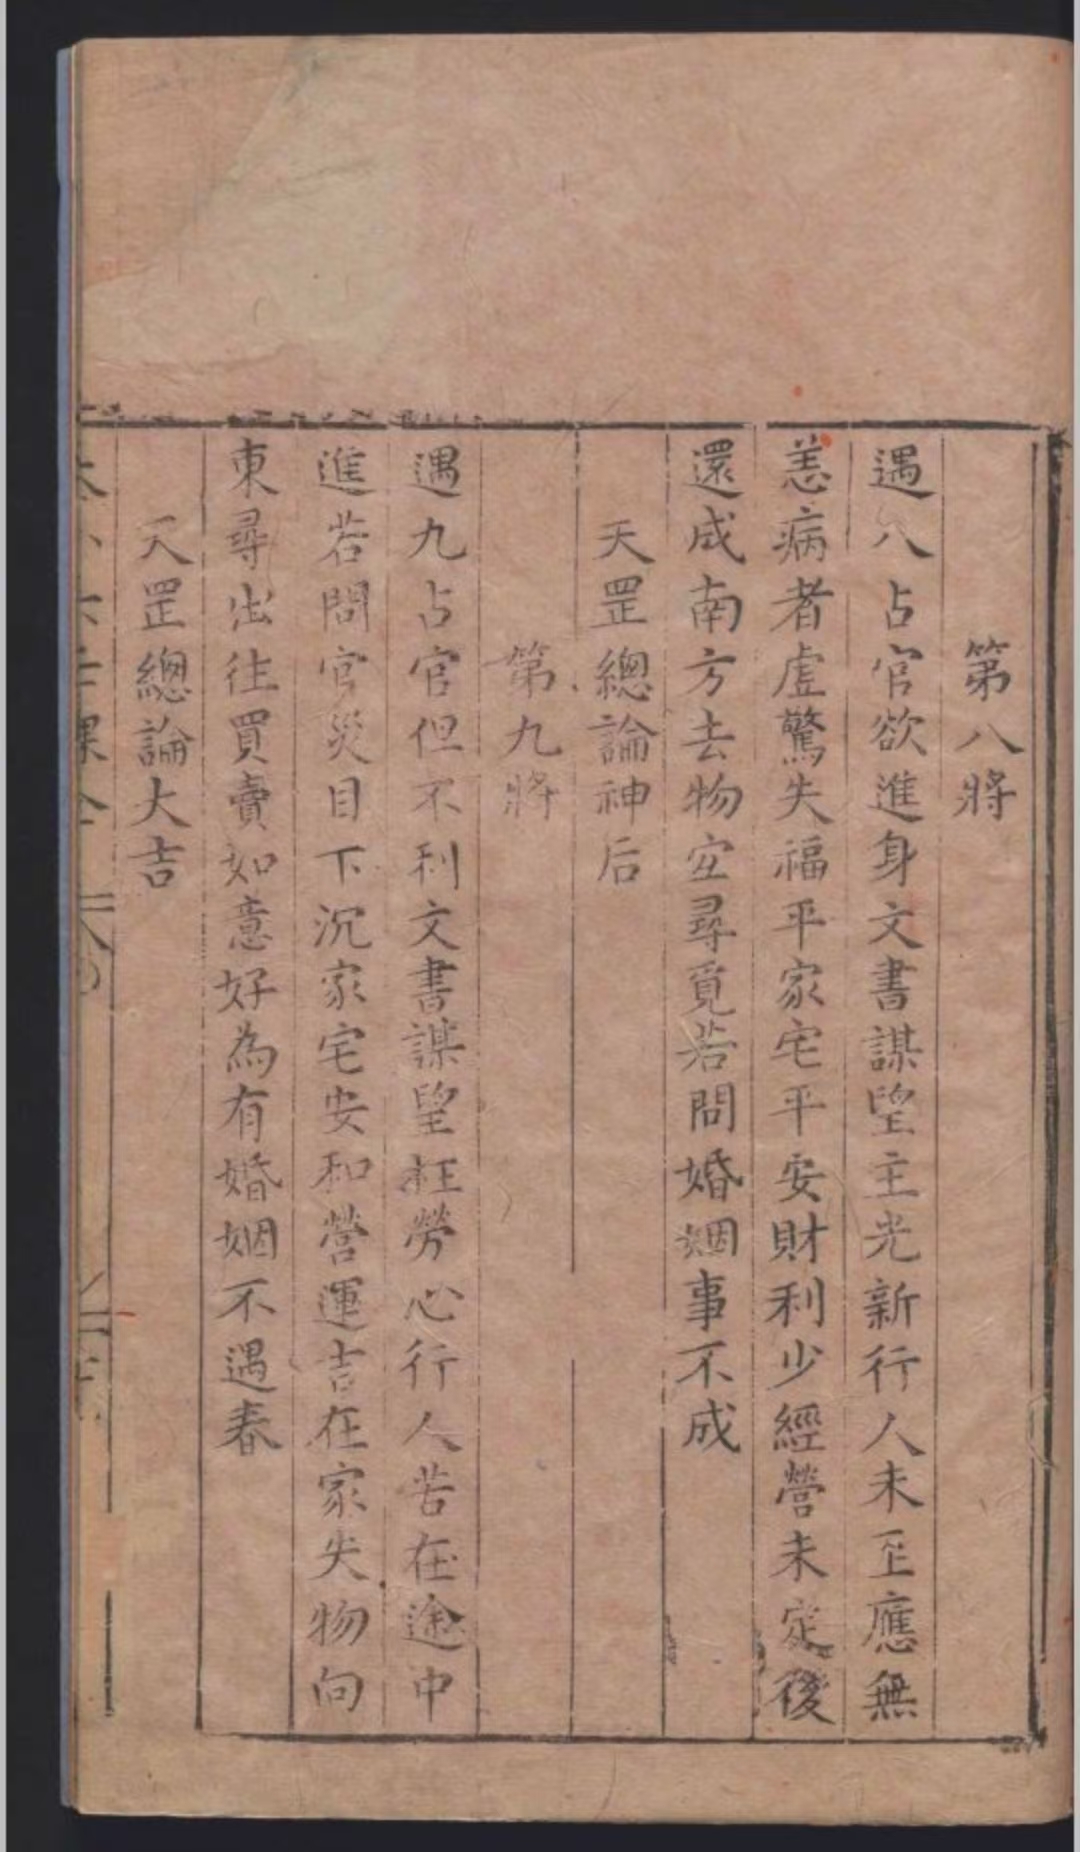 第八將
遇八占官欲進身文書謀望主光新行人未至應無
恙病者虛驚失福平家宅平安財利少經營未定後
還成南方去物空尋覓若問婚姻事不成
天罡總論神后
第九將
遇九占官但不利文書謀望枉勞心行人苦在途中
進若問官災目下沉家宅安和營運吉在家失物向
東尋出往買賣如意好為有婚姻不遇春
天罡總論大吉